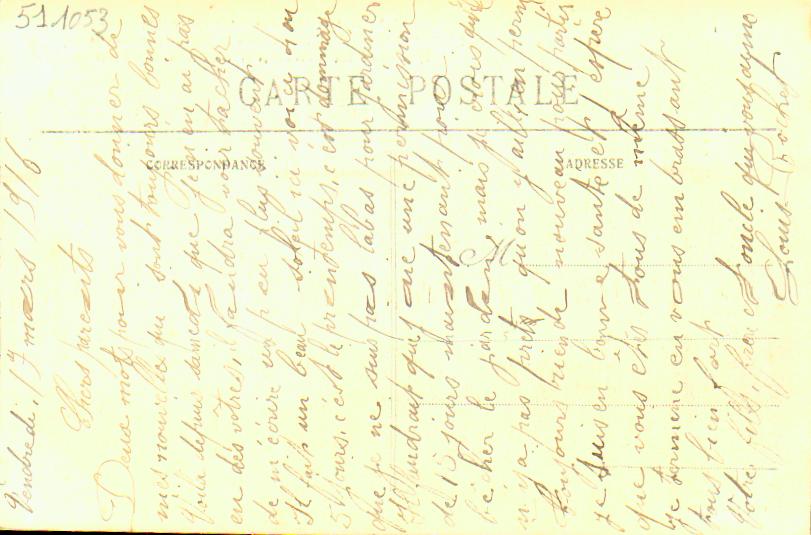 511053
CARTE POSTALE
CORRESPONDANCE
ADRESSE
M
Vendredi, 17 mars 1916
Chers parents
Deux mots pour vous donner de
mes nouvelles qui sont toujours bonnes
Voila depuis samedi que je n'en ai pas
eu des vôtres, il faudra vous tacher
de m'écrire un peu plus souvent.
Il fait un beau soleil ici voici 4 ou
5 jours, c'est le printemps, c'est dommage
que je ne suis pas labas pour jardiner
Il faudrait que une permission
de 15 jours maintenant pour
bêcher le jardin, mais je crois que
n'y a pas prêts qu'on y aille en perm
Toujours rien de nouveau pour partir
Je suis en bonne santé et j'espère
que vous êtes tous de même
Je termine en vous embrassant
tous bien fort
Votre fils, frère et oncle qui vous aime
Louis